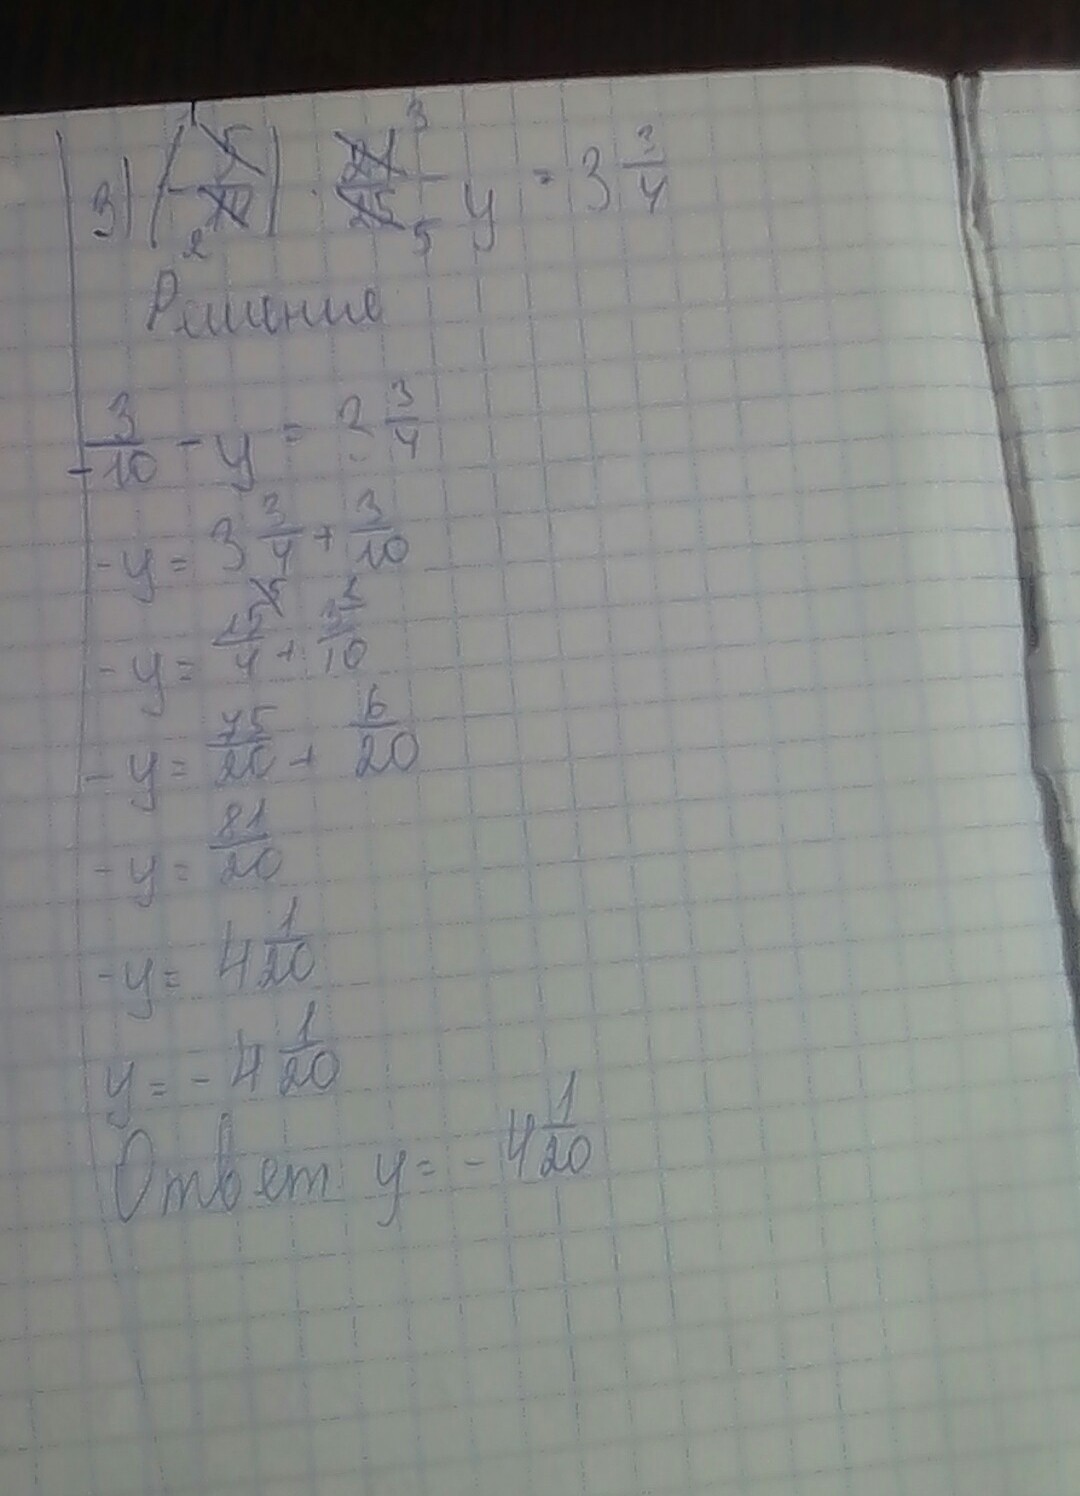 3) (- 5/14) · 21/25 - y = 3 3/4
Решение
- 3/10 - y = 3 3/4
- y = 3 3/4 + 3/10
- y = 15/4 + 3/10
- y = 75/20 + 6/20
- y = 81/20
- y = 4 1/20
y = - 4 1/20
Ответ y = - 4 1/20